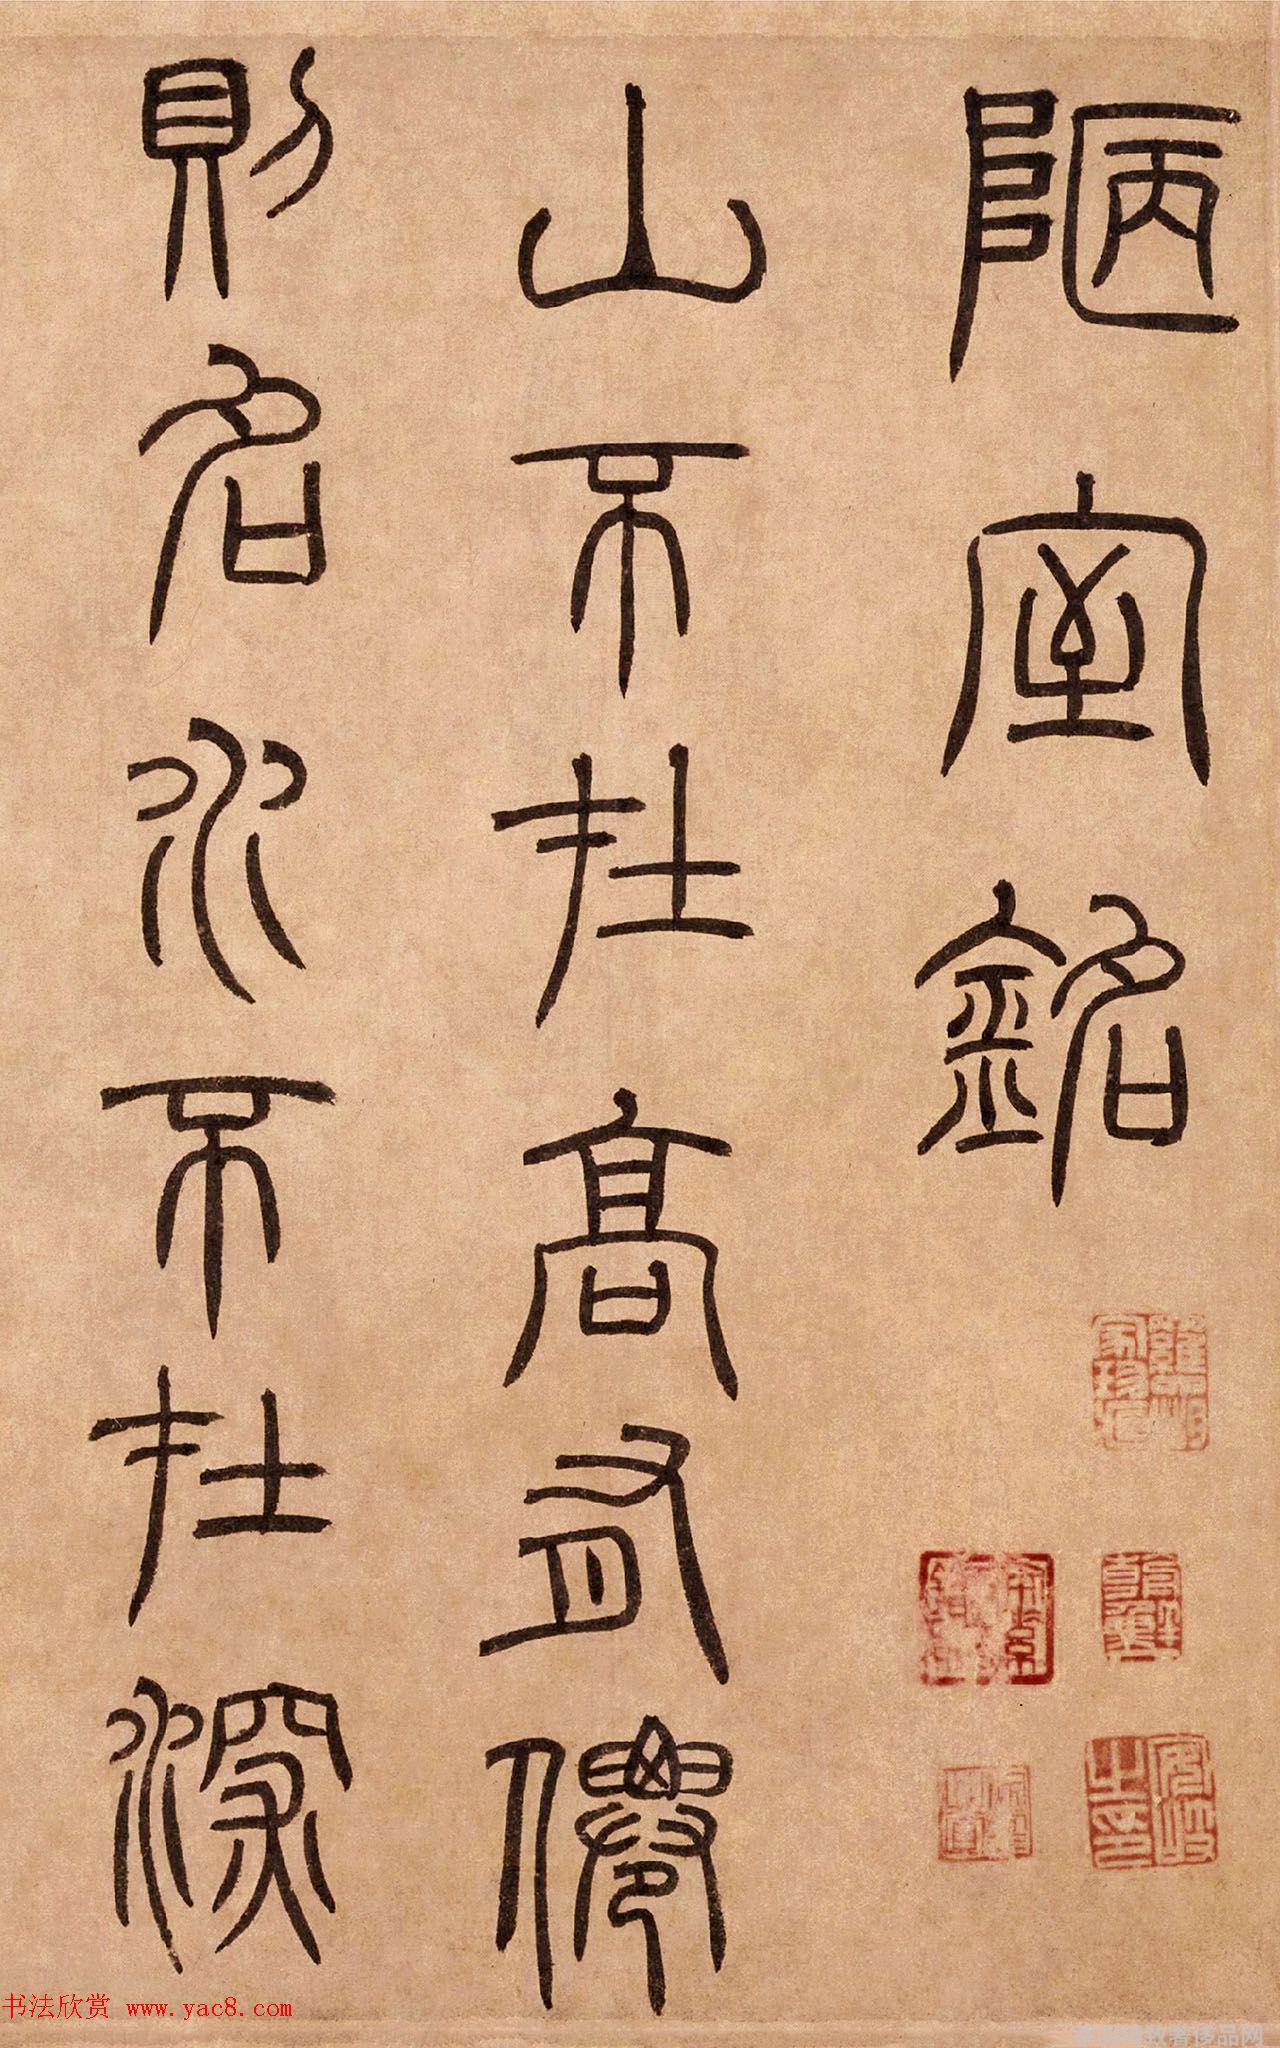 陋室銘
山不在高有僊
則名水不在深
书法欣赏 www.yac8.com